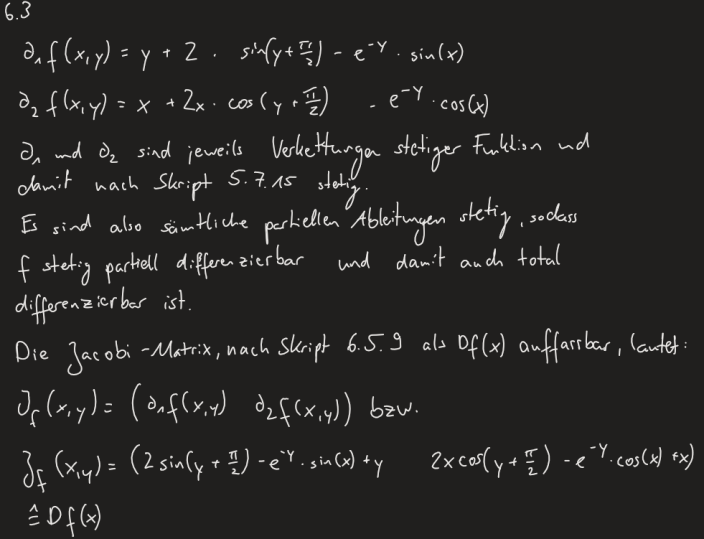 6.3
∂₁f(x,y) = y + 2 · sin(y+π/2) - e^-y · sin(x)
∂₂f(x,y) = x + 2x · cos(y+π/2) - e^-y · cos(x)
∂₁ und ∂₂ sind jeweils Verkettungen stetiger Funktion und
damit nach Skript 5.7.15 stetig.
Es sind also sämtliche partiellen Ableitungen stetig, sodass
f stetig partiell differenzierbar und damit auch total
differenzierbar ist.
Die Jacobi-Matrix, nach Skript 6.5.9 als Df(x) auffassbar, lautet:
J_f(x,y) = (∂₁f(x,y) ∂₂f(x,y)) bzw.
J_f(x,y) = (2 sin(y+π/2) - e^-y · sin(x) + y 2x cos(y+π/2) - e^-y · cos(x) + x)
≙ Df(x)